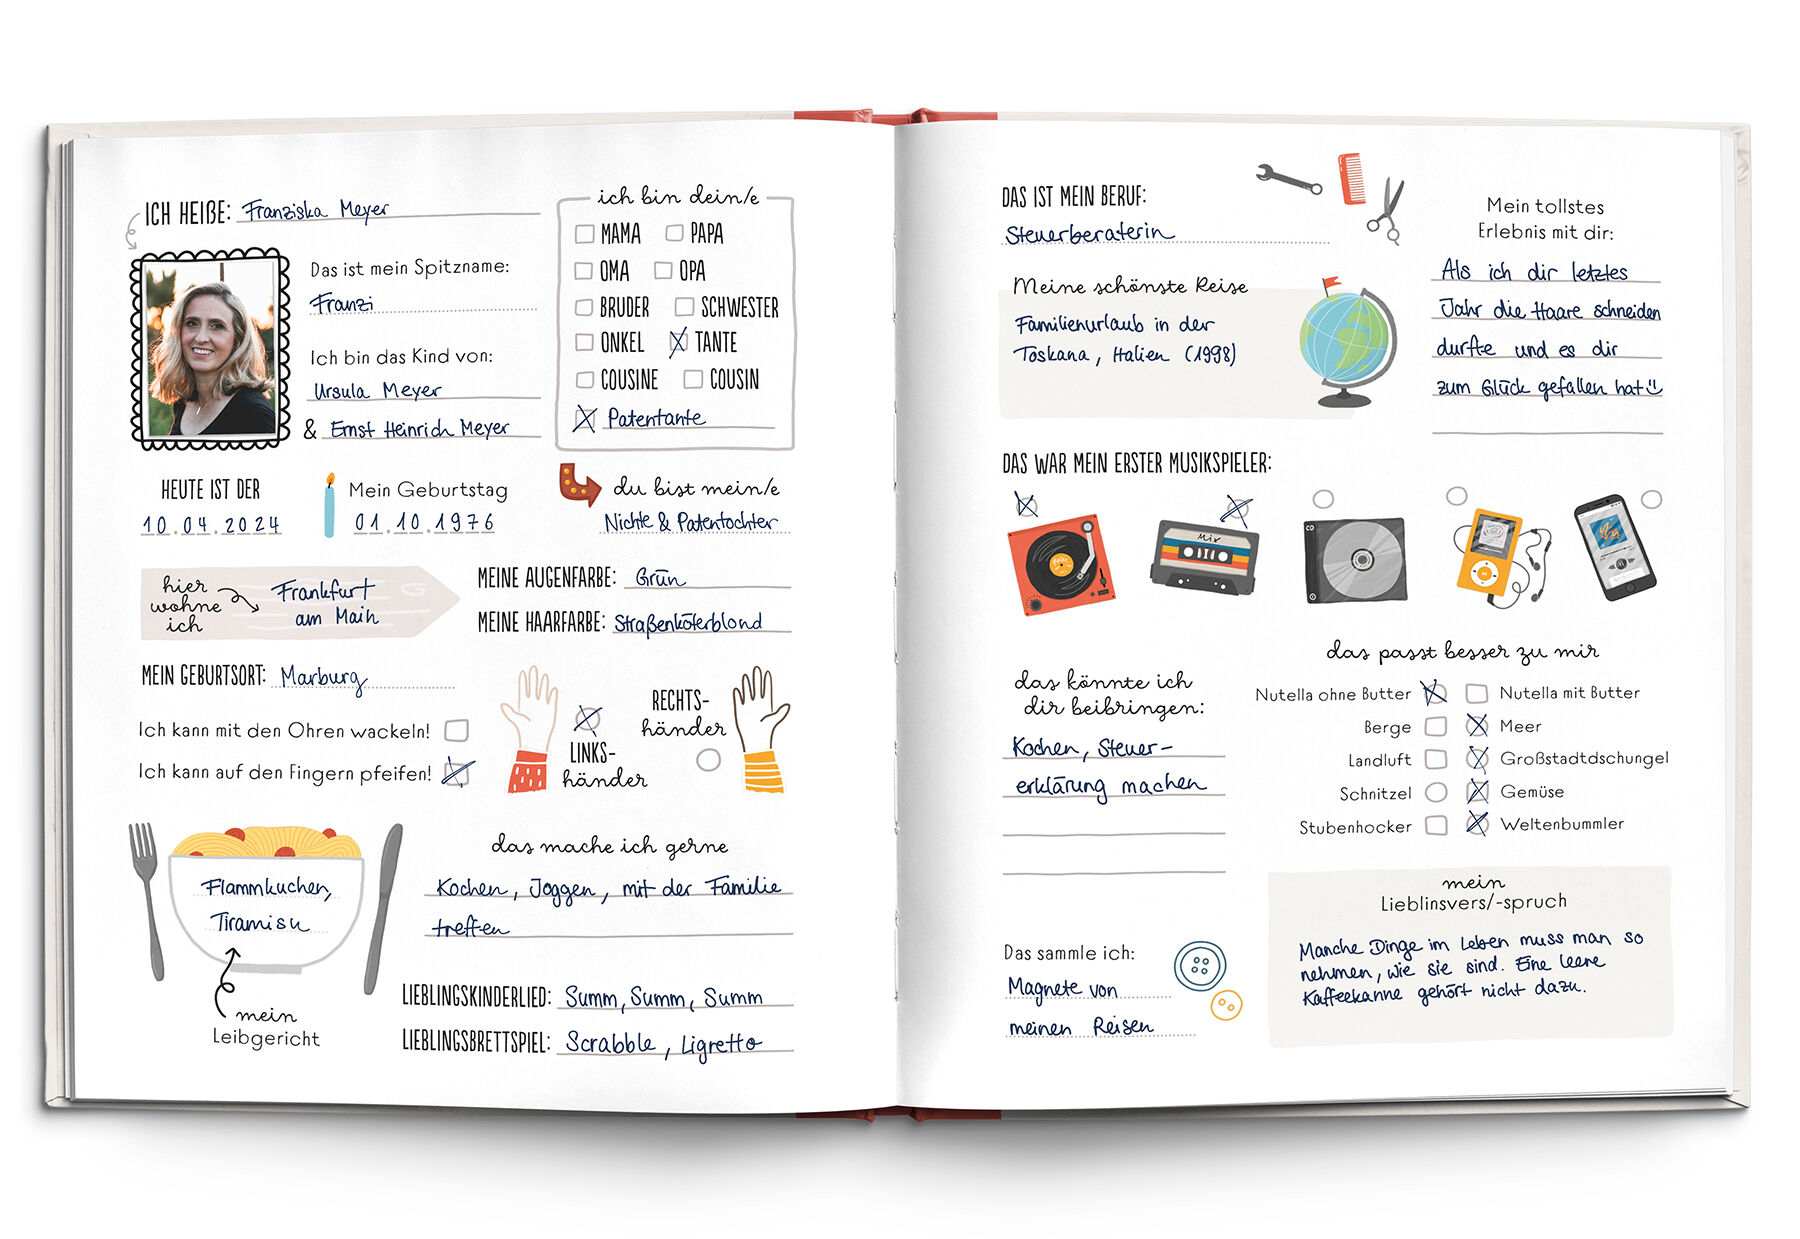 ICH HEIßE: Franziska Meyer
Das ist mein Spitzname:
Franzi
Ich bin das Kind von:
Ursula Meyer
& Ernst Heinrich Meyer
ich bin dein/e
MAMA PAPA
OMA OPA
BRUDER SCHWESTER
ONKEL TANTE
COUSINE COUSIN
Patentante
HEUTE IST DER
10.04.2024
Mein Geburtstag
01.10.1976
du bist mein/e
Nichte & Patentochter
hier
wohne
ich
Frankfurt
am Main
MEINE AUGENFARBE: Grün
MEINE HAARFARBE: Straßenköterblond
MEIN GEBURTSORT: Marburg
Ich kann mit den Ohren wackeln!
Ich kann auf den Fingern pfeifen!
LINKS-
händer
RECHTS-
händer
Flammkuchen,
Tiramisu
mein
Leibgericht
das mache ich gerne
Kochen, Joggen, mit der Familie
treffen
LIEBLINGSKINDERLIED: Summ, Summ, Summ
LIEBLINGSBRETTSPIEL: Scrabble, Ligretto
DAS IST MEIN BERUF:
Steuerberaterin
Meine schönste Reise
Familienurlaub in der
Toskana, Italien (1998)
Mein tollstes
Erlebnis mit dir:
Als ich dir letztes
Jahr die Haare schneiden
durfte und es dir
zum Glück gefallen hat
DAS WAR MEIN ERSTER MUSIKSPIELER:
Mix
CD
das könnte ich
dir beibringen:
Kochen, Steuer-
erklärung machen
das passt besser zu mir
Nutella ohne Butter Nutella mit Butter
Berge Meer
Landluft Großstadtdschungel
Schnitzel Gemüse
Stubenhocker Weltenbummler
Das sammle ich:
Magnete von
meinen Reisen
mein
Lieblinsvers/-spruch
Manche Dinge im Leben muss man so
nehmen, wie sie sind. Eine leere
Kaffeekanne gehört nicht dazu.